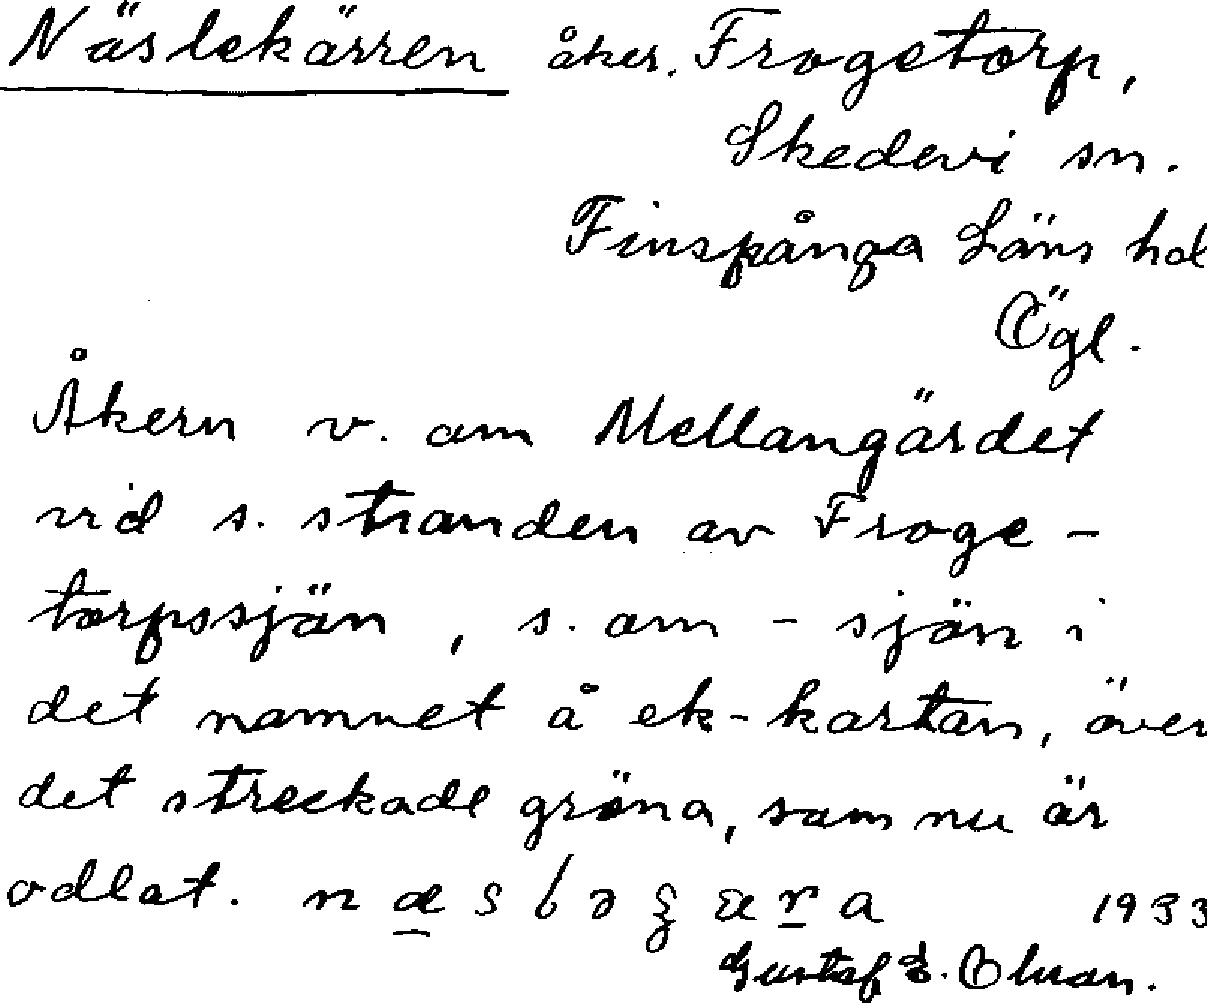 Näslekärren åker. Frogetorp,
Skedevi sn.
Finspånga Läns hd
Ögl.
Åkern v. om Mellangärdet
vid s. stranden av Froge-
torpssjön, s. om -sjön i
det namnet å ek-kartan, över
det streckade gröna, som nu är
odlat. 1933
Gustaf E.